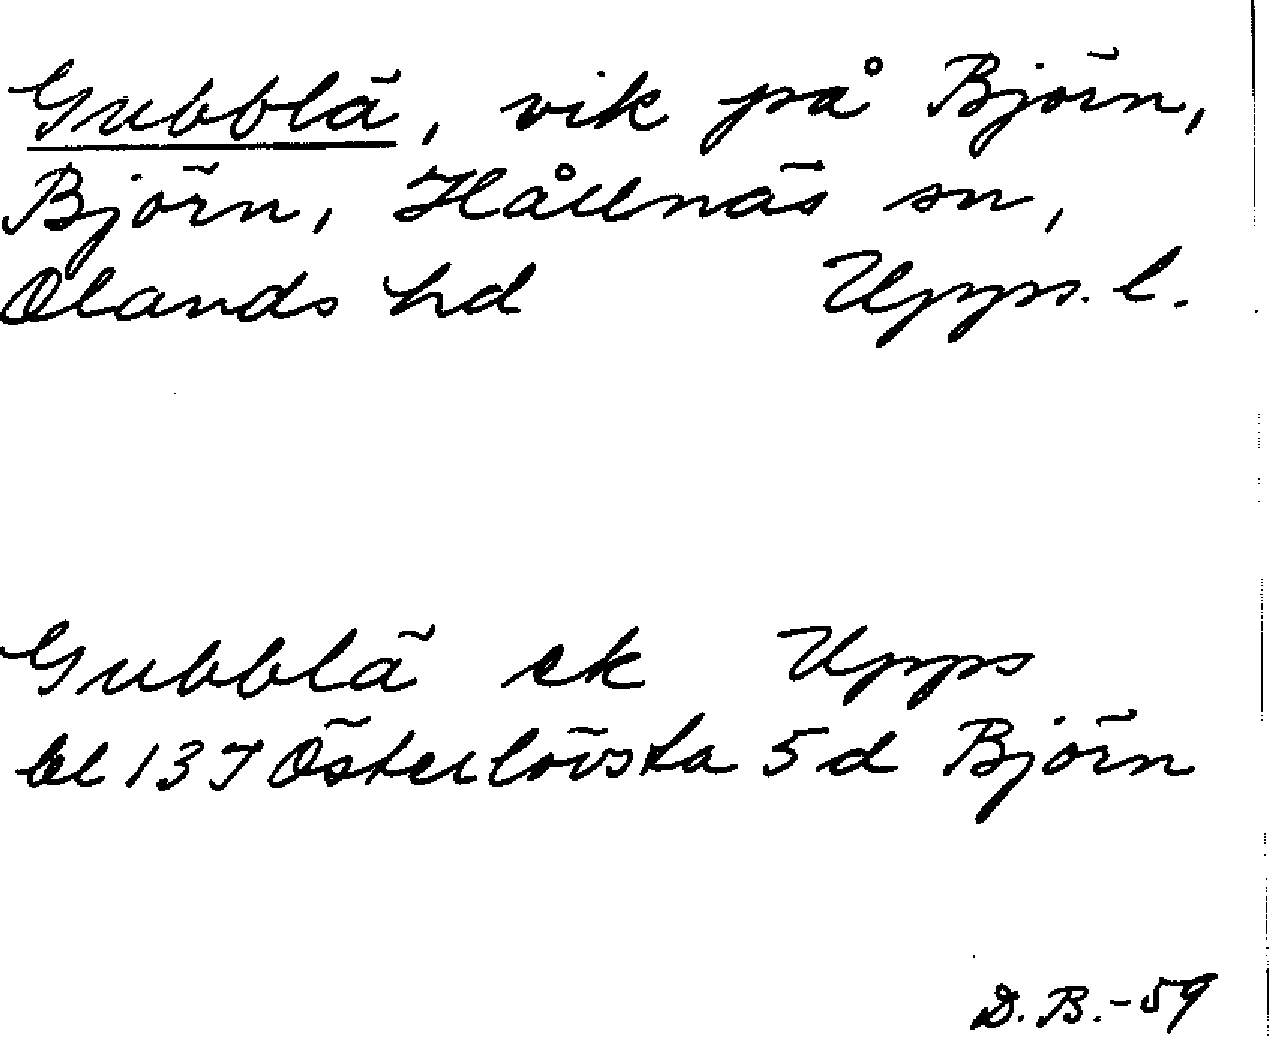 Gubblä, vik på Björn,
Björn, Hållnäs sn,
Olands hd Upps. l.
Gubblä ek Upps
bl 13 I Österlövsta 5 d Björn
D. B. -59